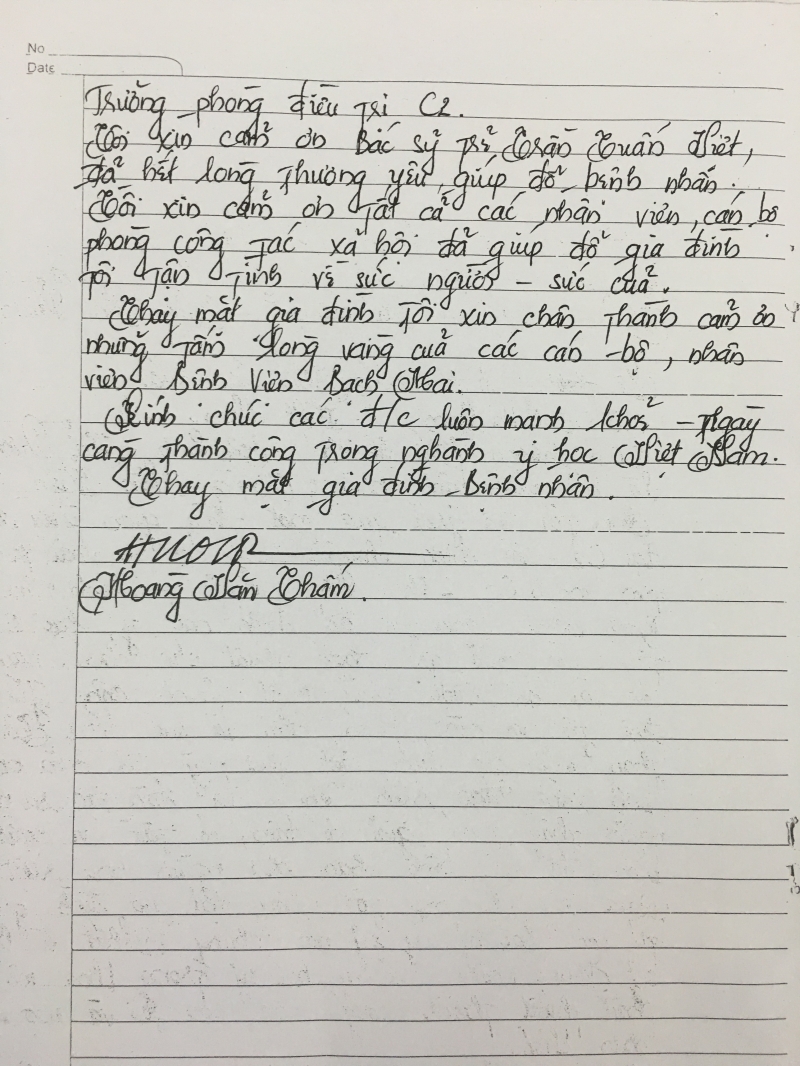 No
Date
Trưởng phòng điều trị C2.
Tôi xin cảm ơn Bác sỹ trẻ, Trần Tuấn Việt,
đã hết lòng thương yêu, giúp đỡ bệnh nhân.
Tôi xin cảm ơn tất cả các nhân viên, cán bộ
phòng công tác xã hội đã giúp đỡ gia đình
tôi tận tình về sức người - sức của.
Thay mặt gia đình tôi xin chân thành cảm ơn
những tấm lòng vàng của các cán - bộ, nhân
viên Bệnh Viện Bạch Mai.
Kính chúc các đ/c luôn mạnh khỏe - ngày
càng thành công trong nghành y học Việt Nam.
Thay mặt gia đình - Bệnh nhân.
Hoàng Văn Thắm.